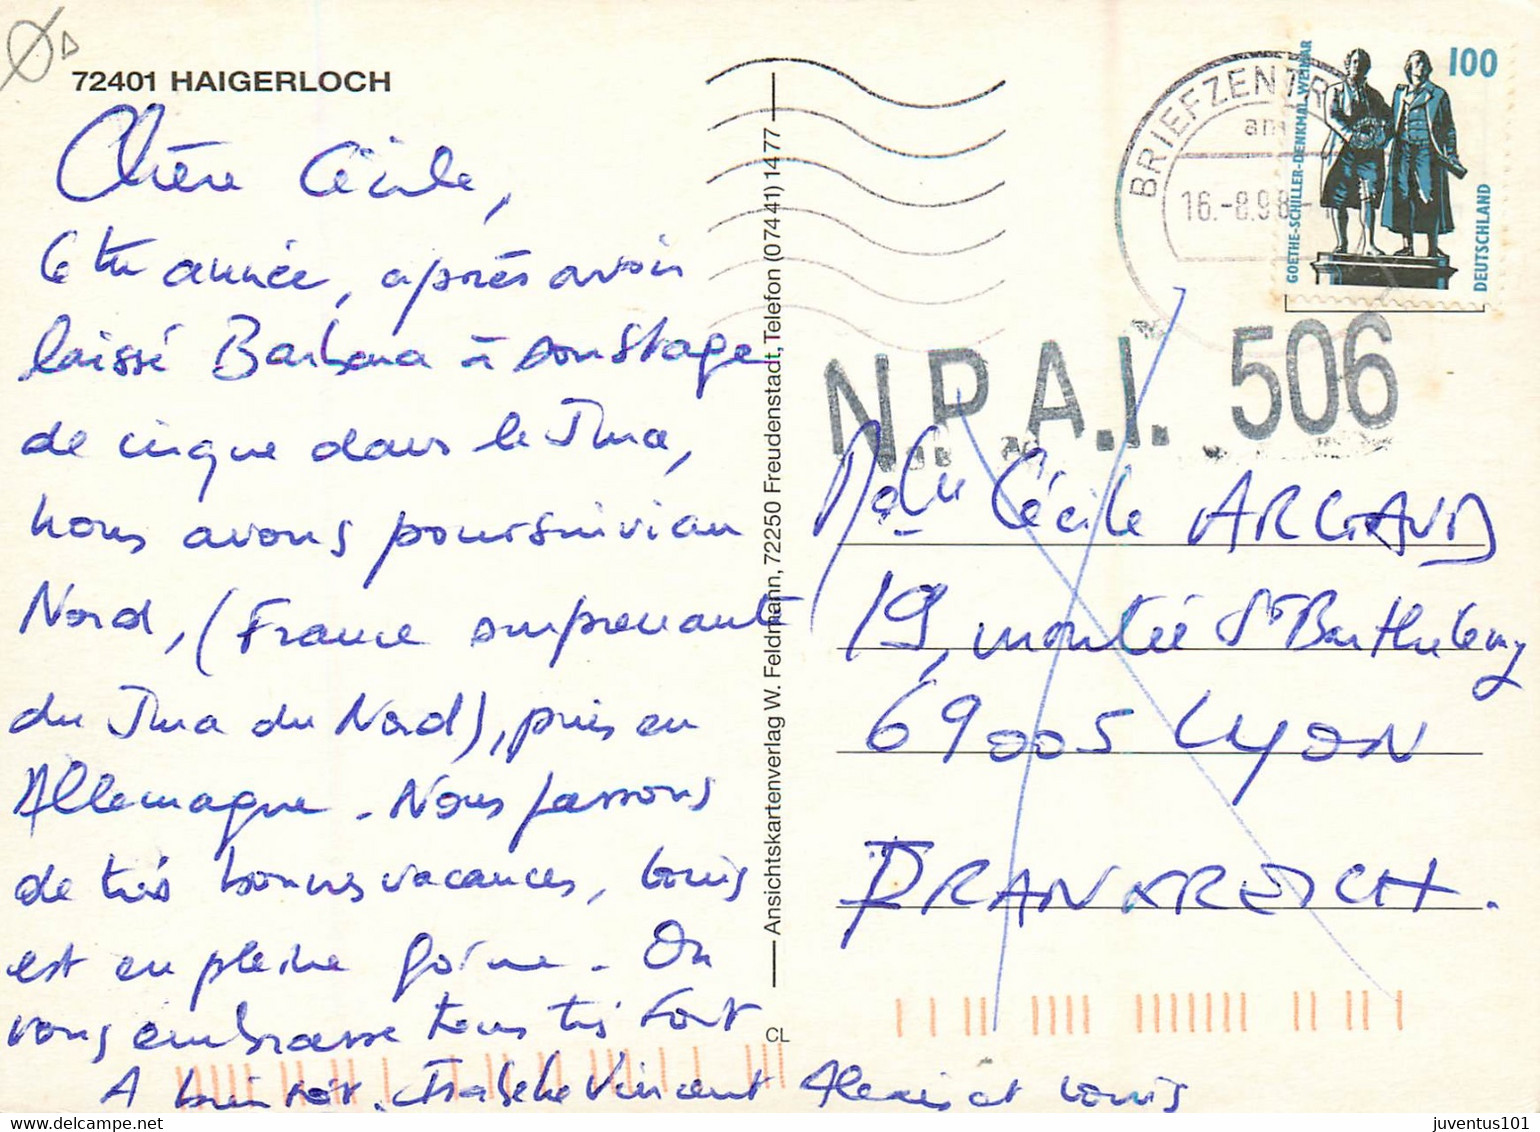 72401 HAIGERLOCH
Chère Cécile,
6ème année, après avoir
laissé Barbara à son stage
de cirque dans le Jura,
nous avons poursuivi au
Nord, (France surprenante
du Jura du Nord), puis en
Allemagne. Nous passons
de très bonnes vacances, Louis
est en pleine forme. On
vous embrasse tous très fort
A bientôt. Isabelle Vincent Alexis et Louis
Ansichtskartenverlag W. Feldmann, 72250 Freudenstadt, Telefon (07441) 1477
CL
BRIEFZENTR
16.-8.98
GOETHE-SCHILLER-DENKMAL WEIMAR
100
DEUTSCHLAND
N.P.A.I. 506
Cécile ARGAUD
19, montée St Barthélemy
69005 LYON
FRANKREICH.
juventus101